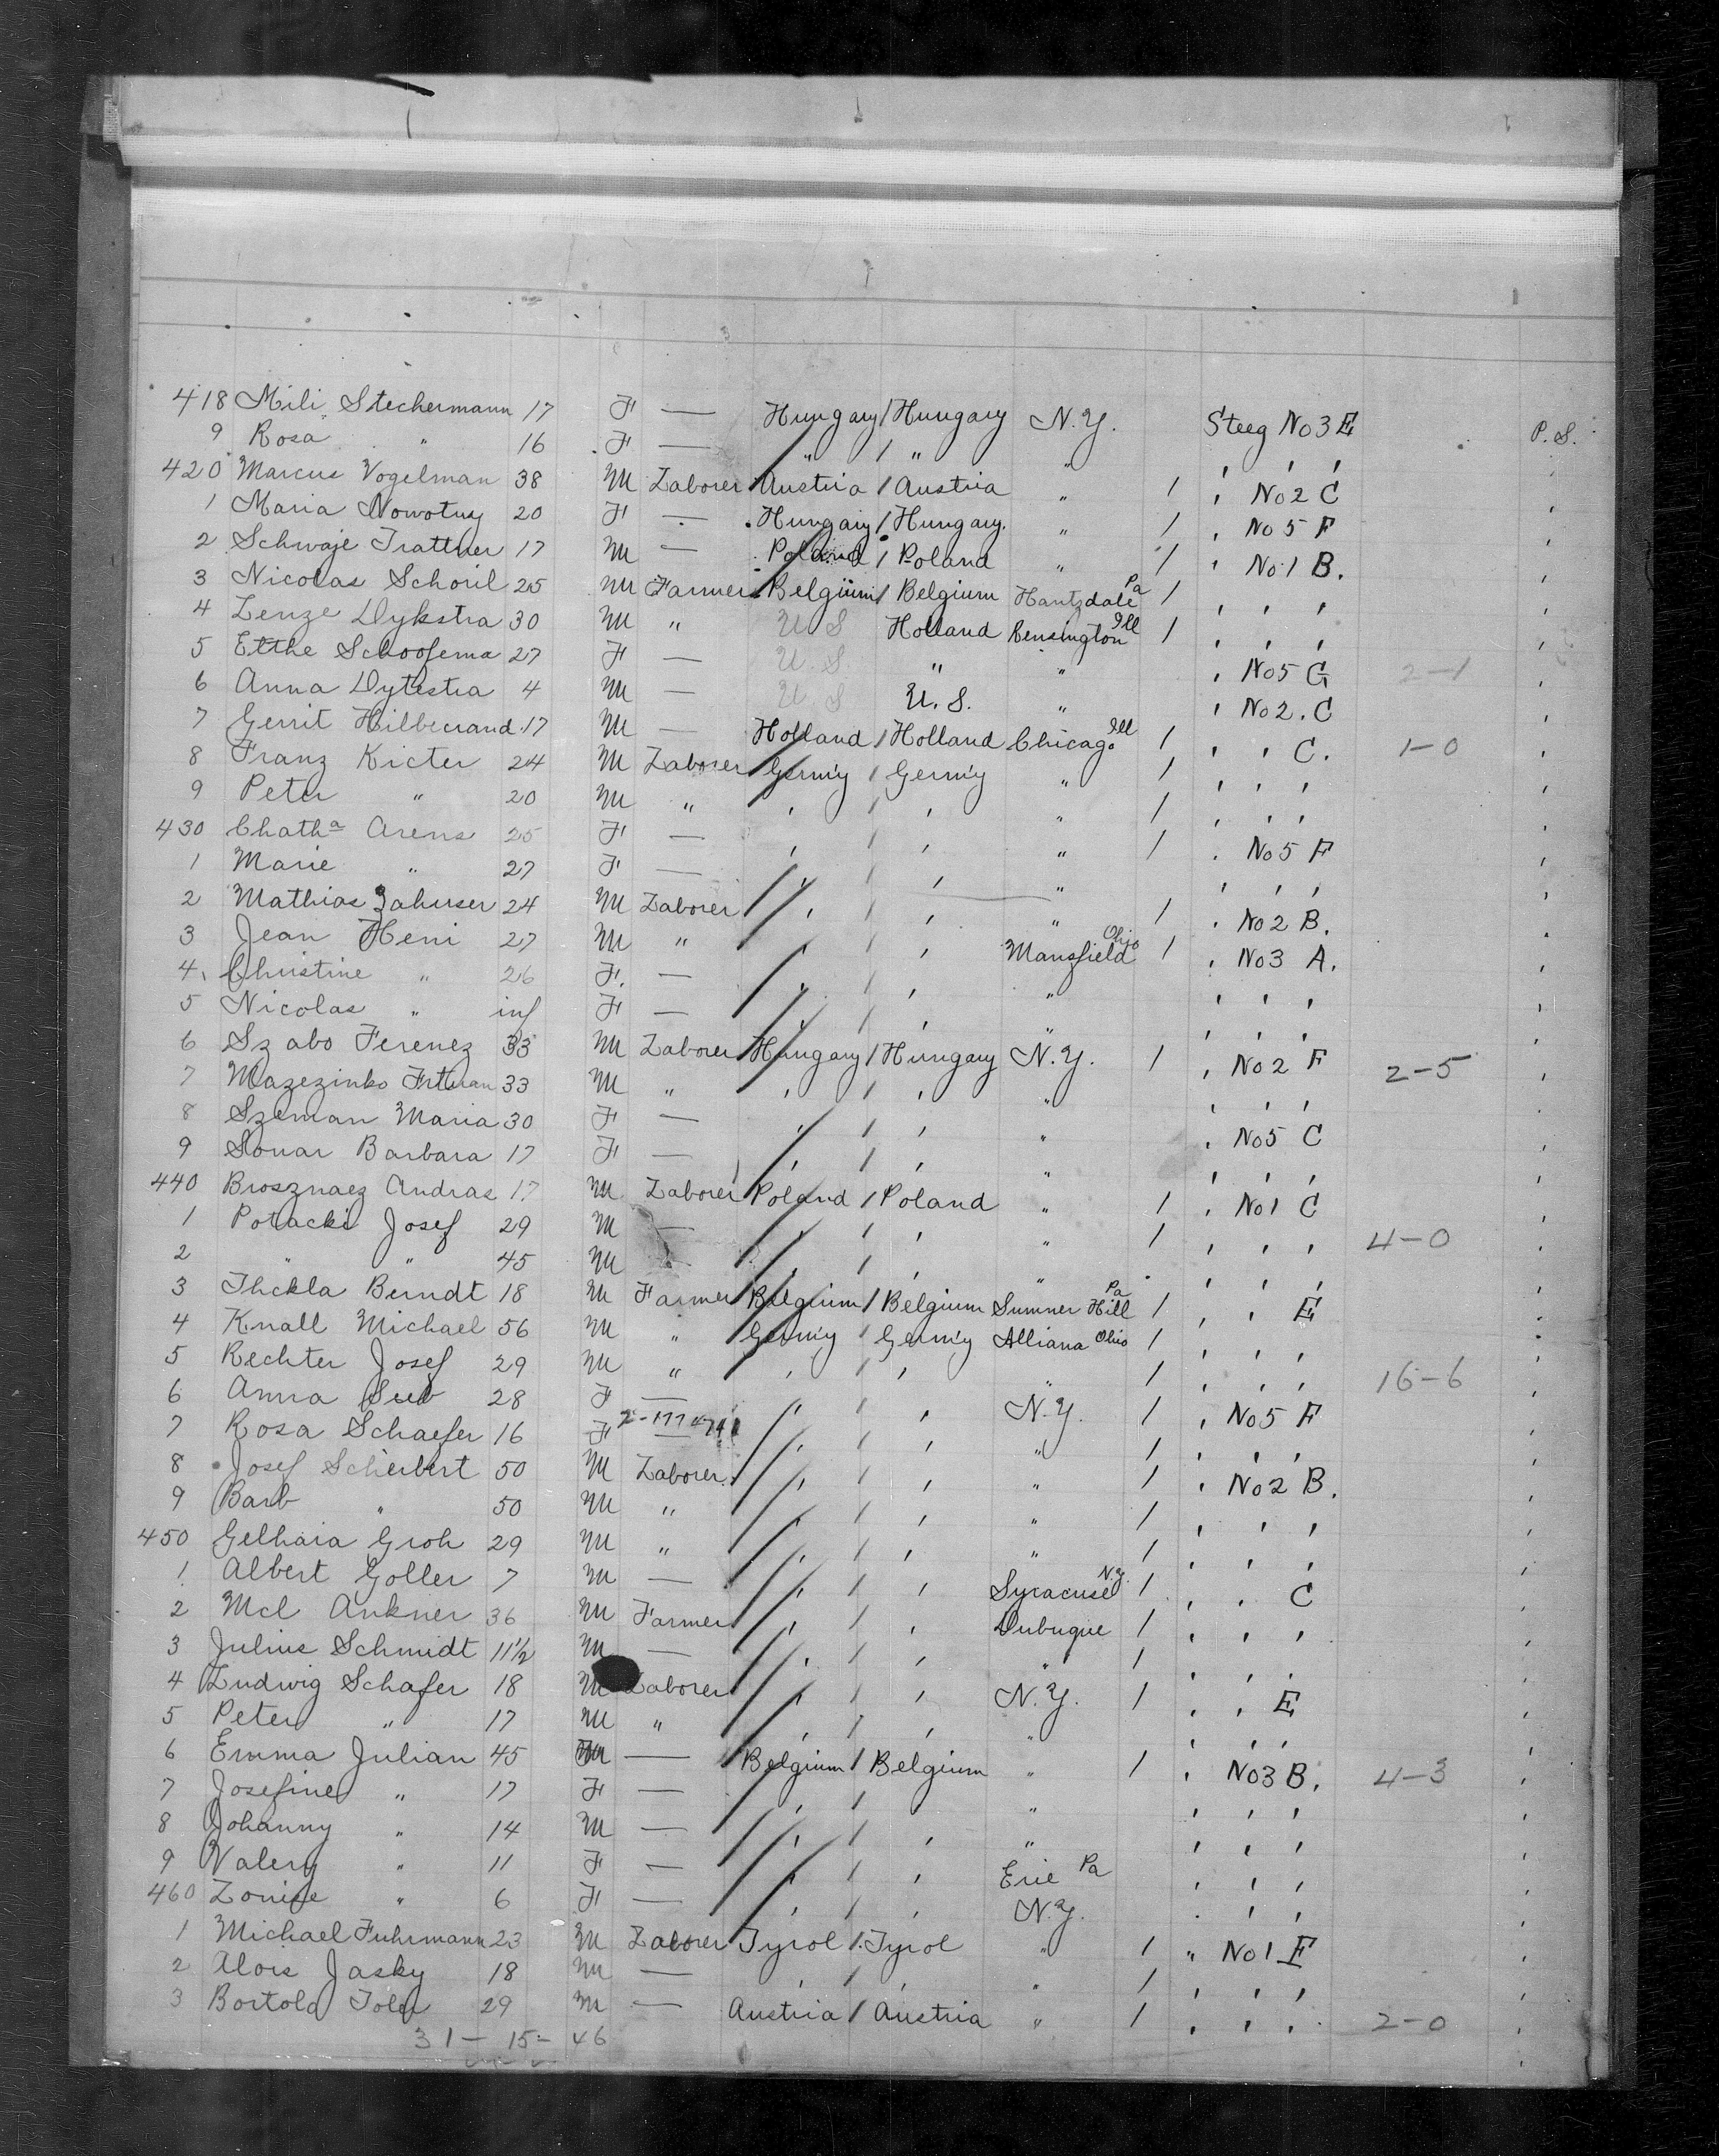 418 Mili Stechermann 17 F — Hungary / Hungary N.Y. Steeg No 3 E P. S.
9 Rosa " 16 F — " / " " ' ' '
420 Marcus Vogelman 38 M Laborer Austria / Austria " 1 ' No 2 C
1 Maria Nowotny 20 F — Hungary / Hungary. " 1 ' No 5 F
2 Schwaje Trattner 17 M — Poland / Poland " 1 ' No 1 B.
3 Nicolas Schoril 25 M Farmer Belgium / Belgium Hantzdale Pa 1 ' ' '
4 Lenze Dykstra 30 M " U S Holland Kensington Ill 1 ' ' '
5 Etthe Schoofema 27 F — U. S. " " ' No 5 G 2-1
6 Anna Dytestra 4 M — U S U. S. " ' No 2. C
7 Gerrit Hilbecrand 17 M — Holland / Holland Chicago Ill 1 ' ' C. 1-0
8 Franz Kicter 24 M Laborer Germ'y / Germ'y " 1 ' ' '
9 Peter " 20 M " ' / ' " 1 ' ' '
430 Chath a Arens 25 F — ' / ' " 1 ' No 5 F
1 Marie " 27 F — ' / ' " ' ' '
2 Mathias Zahuser 24 M Laborer ' / ' " 1 ' No 2 B.
3 Jean Heni 27 M " ' / ' Mansfield Ohio 1 ' No 3 A.
4 Christine " 26 F. — ' / ' " ' ' '
5 Nicolas " inf F — ' / ' " ' ' '
6 Szabo Ferencz 33 M Laborer Hungary / Hungary N.Y. 1 ' No 2 F 2-5
7 Mazezinko 33 M " ' / ' " ' ' '
8 Szeman Maria 30 F — ' / ' " ' No 5 C
9 Sonar Barbara 17 F — ' / ' " ' ' '
440 Brosznaez Andras 17 M Laborer Poland / Poland " 1 ' No 1 C
1 Potacki Josef 29 M — ' / ' " 1 ' ' ' 4-0
2 " " 45 M — ' / ' " ' ' '
3 Thekla Berndt 18 M Farmer Belgium / Belgium Sumner Hill Pa 1 ' ' E
4 Knall Michael 56 M " Germ'y / Germ'y Alliana Ohio 1 ' ' '
5 Rechter Josef 29 M " ' / ' " 1 ' ' ' 16-6
6 Anna 28 F — ' / ' N.Y. 1 ' No 5 F
7 Rosa Schaefer 16 F — ' / ' " 1 ' ' '
8 Josef Scheibert 50 M Laborer ' / ' " 1 ' No 2 B.
9 Barb " 50 M " ' / ' " 1 ' ' '
450 Gelhaia Groh 29 M " ' / ' " 1 ' ' '
1 Albert Goller 7 M — ' / ' Syracuse N.Y. 1 ' ' C
2 Mcl Ankner 36 M Farmer ' / ' Dubuque 1 ' ' '
3 Julius Schmidt 11½ M — ' / ' " 1 ' ' '
4 Ludwig Schafer 18 M Laborer ' / ' N.Y. 1 ' ' E
5 Peter " 17 M " ' / ' " ' ' '
6 Emma Julian 45 — Belgium / Belgium " 1 ' No 3 B. 4-3
7 Josefine " 17 F — ' / " ' ' '
8 Johanny " 14 M — ' / ' " ' ' '
9 Valery " 11 F — ' / ' Erie Pa ' ' '
460 Louise " 6 F — ' / ' N.Y. ' ' '
1 Michael Fuhrmann 23 M Laborer Tyrol / Tyrol " 1 " No 1 E
2 Alois Jasky 18 M — ' / ' " 1 ' ' '
3 Bortolo 29 M — Austria / Austria " 1 ' ' ' 2-0
31 - 15 = 46